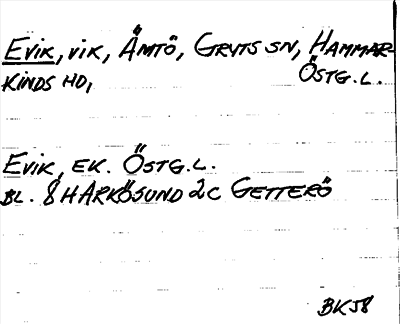 EVIK, VIK, ÄMTÖ, GRYTS SN, HAMMAR-
KINDS HD, ÖSTG. L.
EVIK, EK. ÖSTG. L.
BL. 8 H ARKÖSUND 2C GETTERÖ
BK58